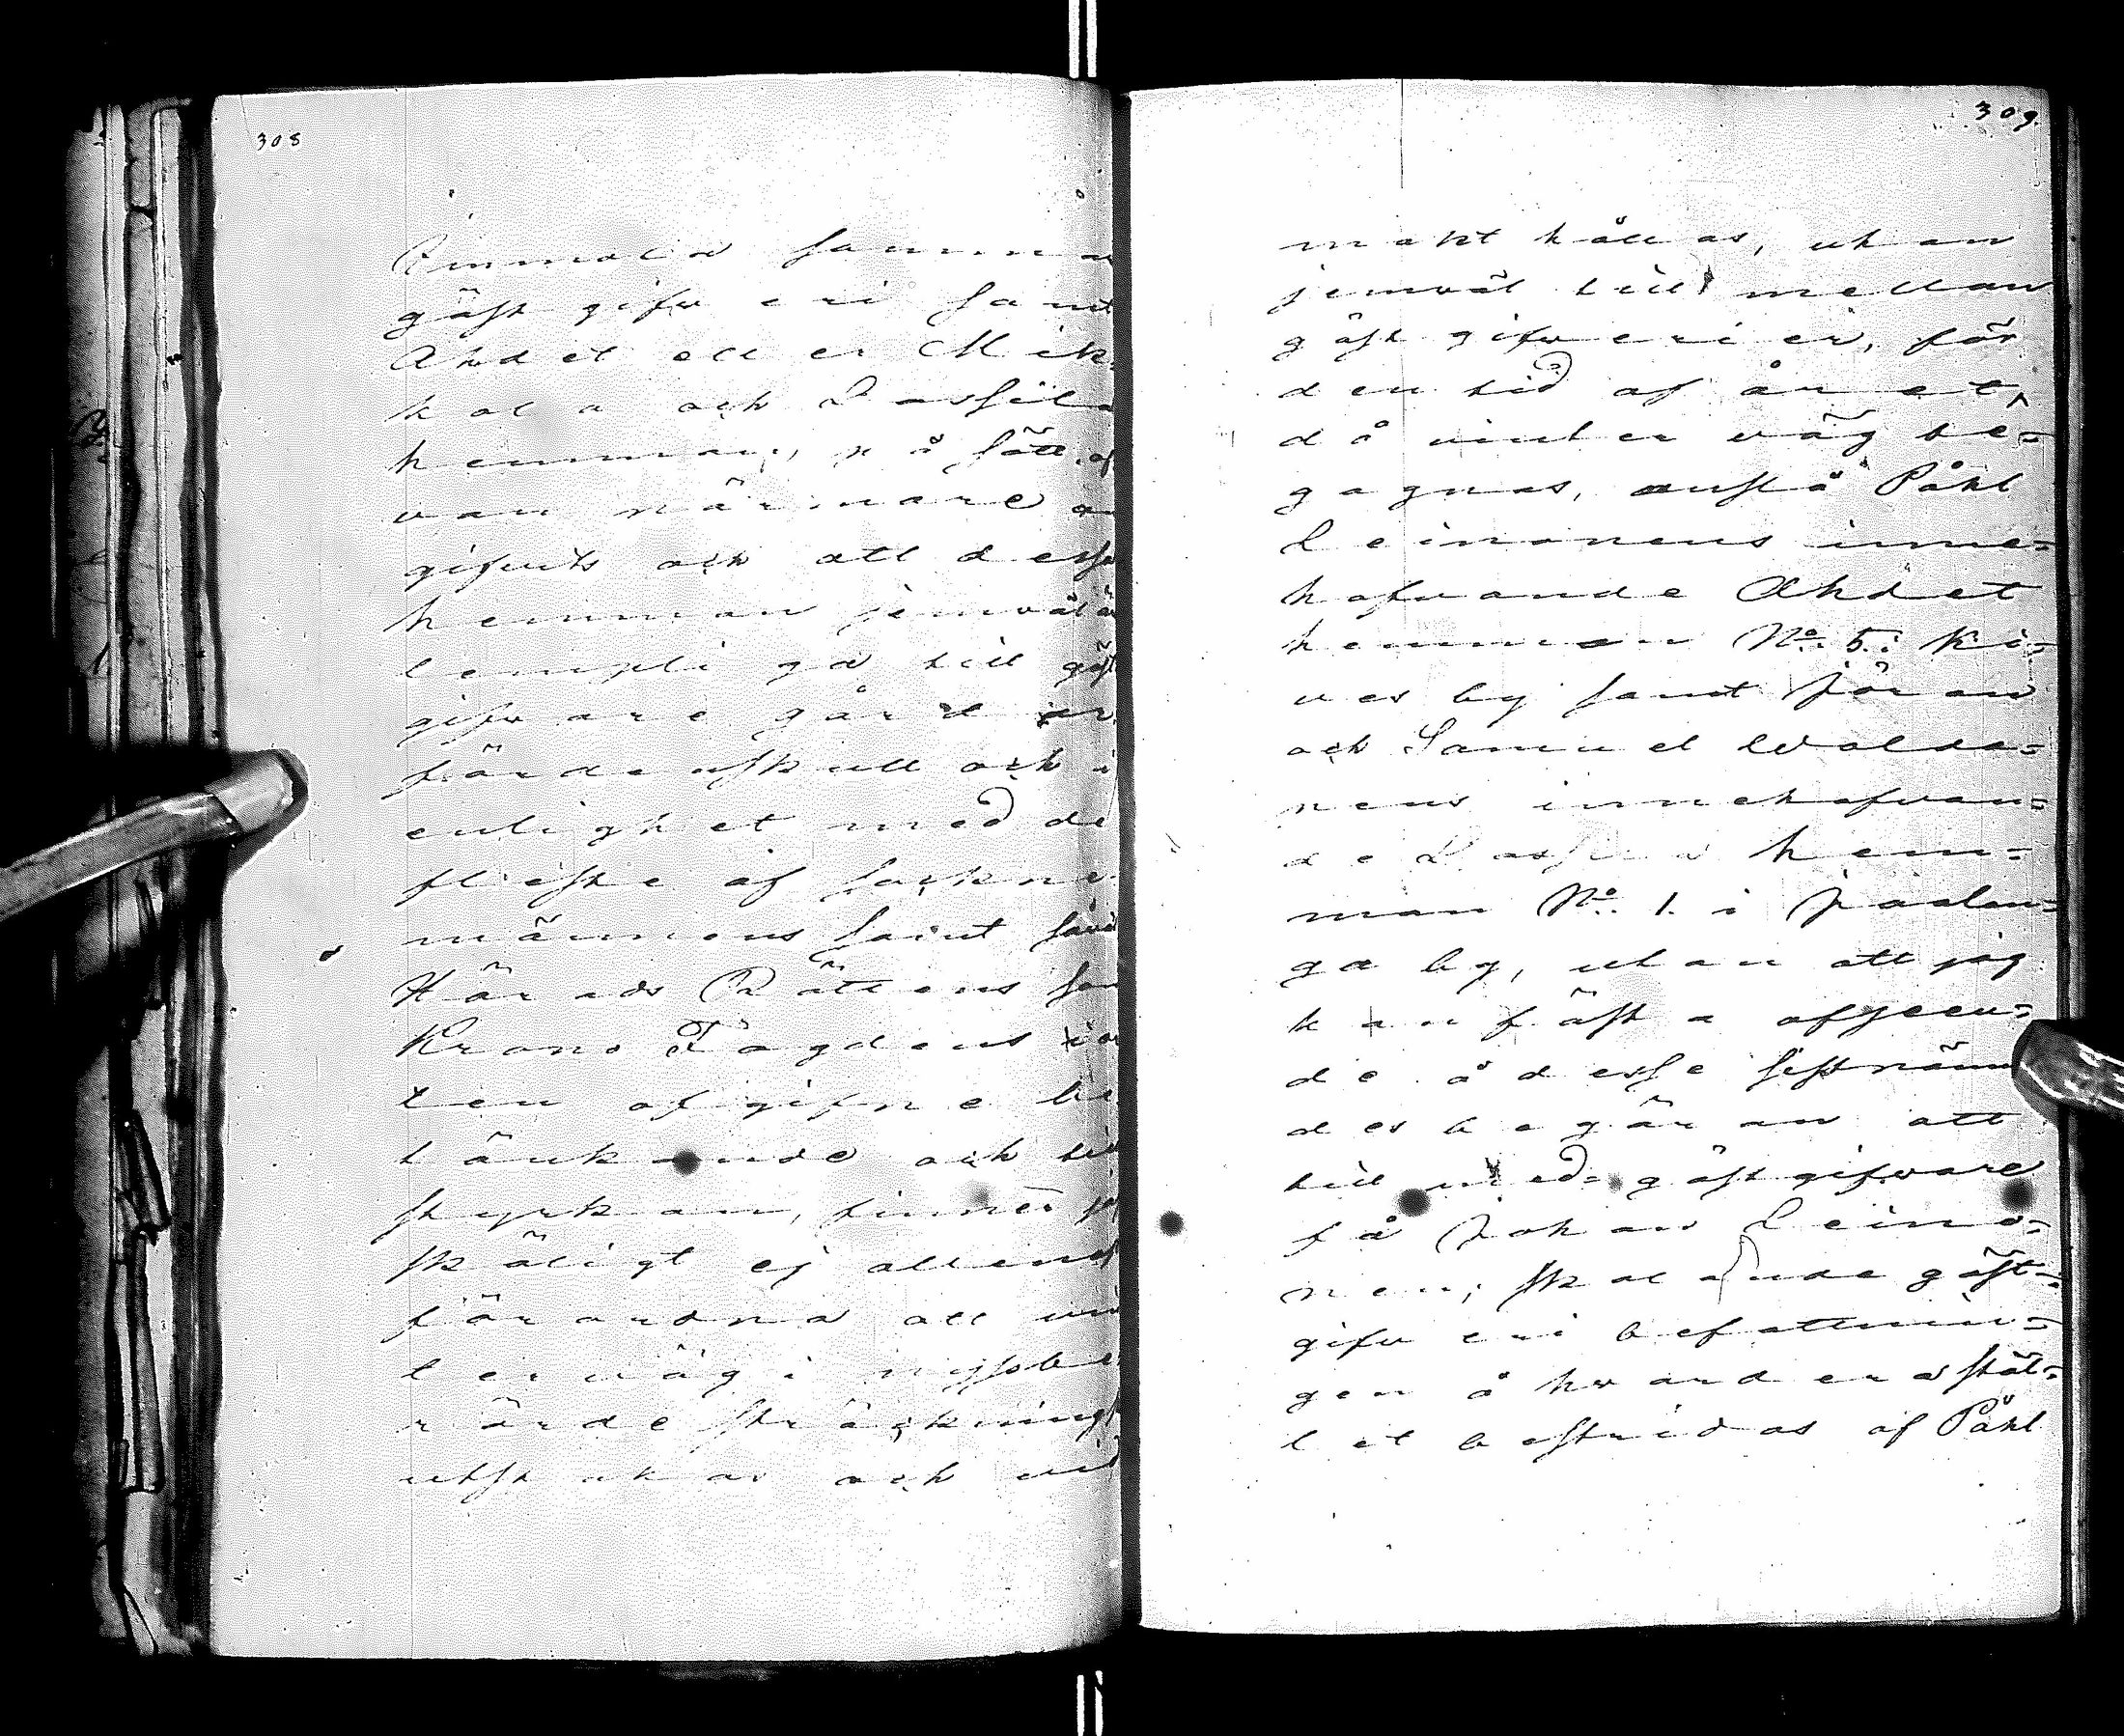 308
gästgifveri samt
Ahdet eller Mik
kola och Lassila
hemman, på sätt of
van närmare a
gifvits och att desse
hemman jemväl ä
lempliga till gäst
gifvare gård er
förde uskull och i
enlighet med de
fleste af sockne
männens samt såväl
Härads Rättens som
Krono Fogdens
ten afgifne be
tänkande och till
styrkan, finner j
skäligt ej allenast
förordna att vin
terväg i nyssbe
rörde sträckning
utstakas och vid
309
makt hållas, utan
jemväl till mellan
gästgifverier, för
den tid af året,
då vinterväg be=
gagnas, anslå Påhl
Leinonens inne=
hafvande Ahdet
hemman No. 5. i Ki=
ves by samt Jöran
och Samuel Wolda=
nens innehafvan=
de Lassila hem=
man No. 1. i Jaalan=
ga by, utan att jag
kan fästa afseen=
de å desse sistnämn
des begäran att
till med-gästgifvare
få Johan Leino=
nen; skolande gäst=
gifveri befattnin=
gen å hvardera stäl=
let bestridas af Påhl